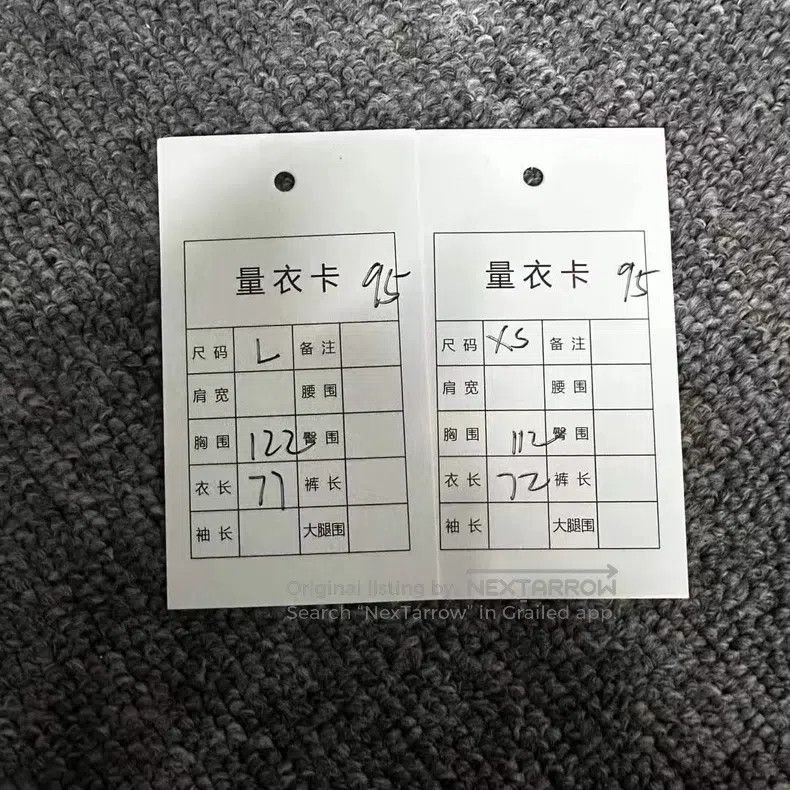 量衣卡 95
尺码 L 备注
肩宽 腰围
胸围 122 臀围
衣长 77 裤长
袖长 大腿围
量衣卡 95
尺码 XS 备注
肩宽 腰围
胸围 112 臀围
衣长 72 裤长
袖长 大腿围
Original listing by NEXTARROW
Search "NexTarrow" in Grailed app.